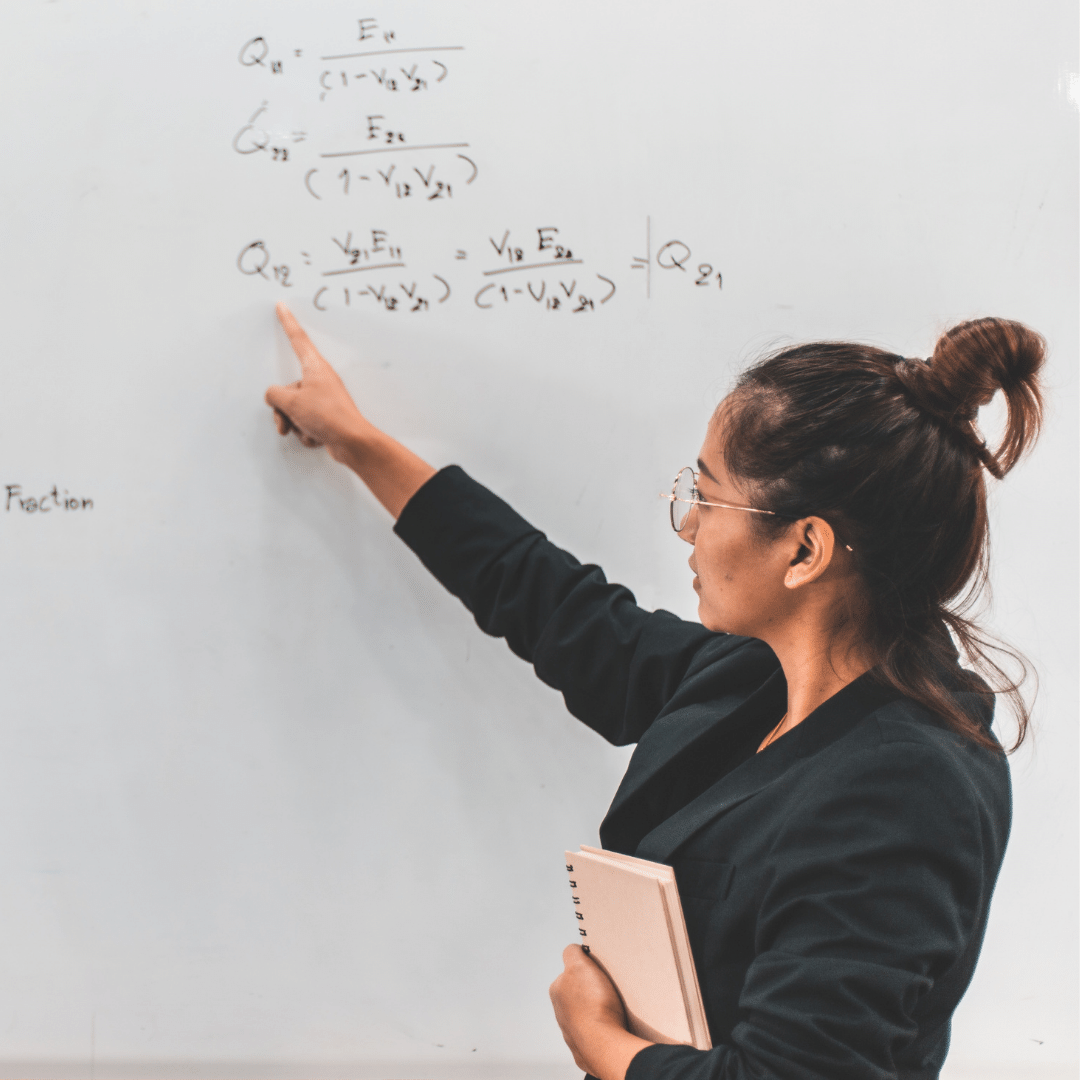 Q₁₁ = E₁₁ / (1 - V₁₂V₂₁)
Q₂₂ = E₂₂ / (1 - V₁₂V₂₁)
Q₁₂ = V₂₁E₁₁ / (1 - V₁₂V₂₁) = V₁₂E₂₂ / (1 - V₁₂V₂₁) = Q₂₁
Fraction